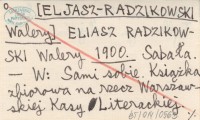 [ELJASZ-RADZIKOWSKI
Walery] ELIASZ RADZIKOW-
SKI Walery 1900. Sabała.
— W: Sami sobie. Książka
zbiorowa na rzecz Warszaw-
skiej Kasy Literackiej